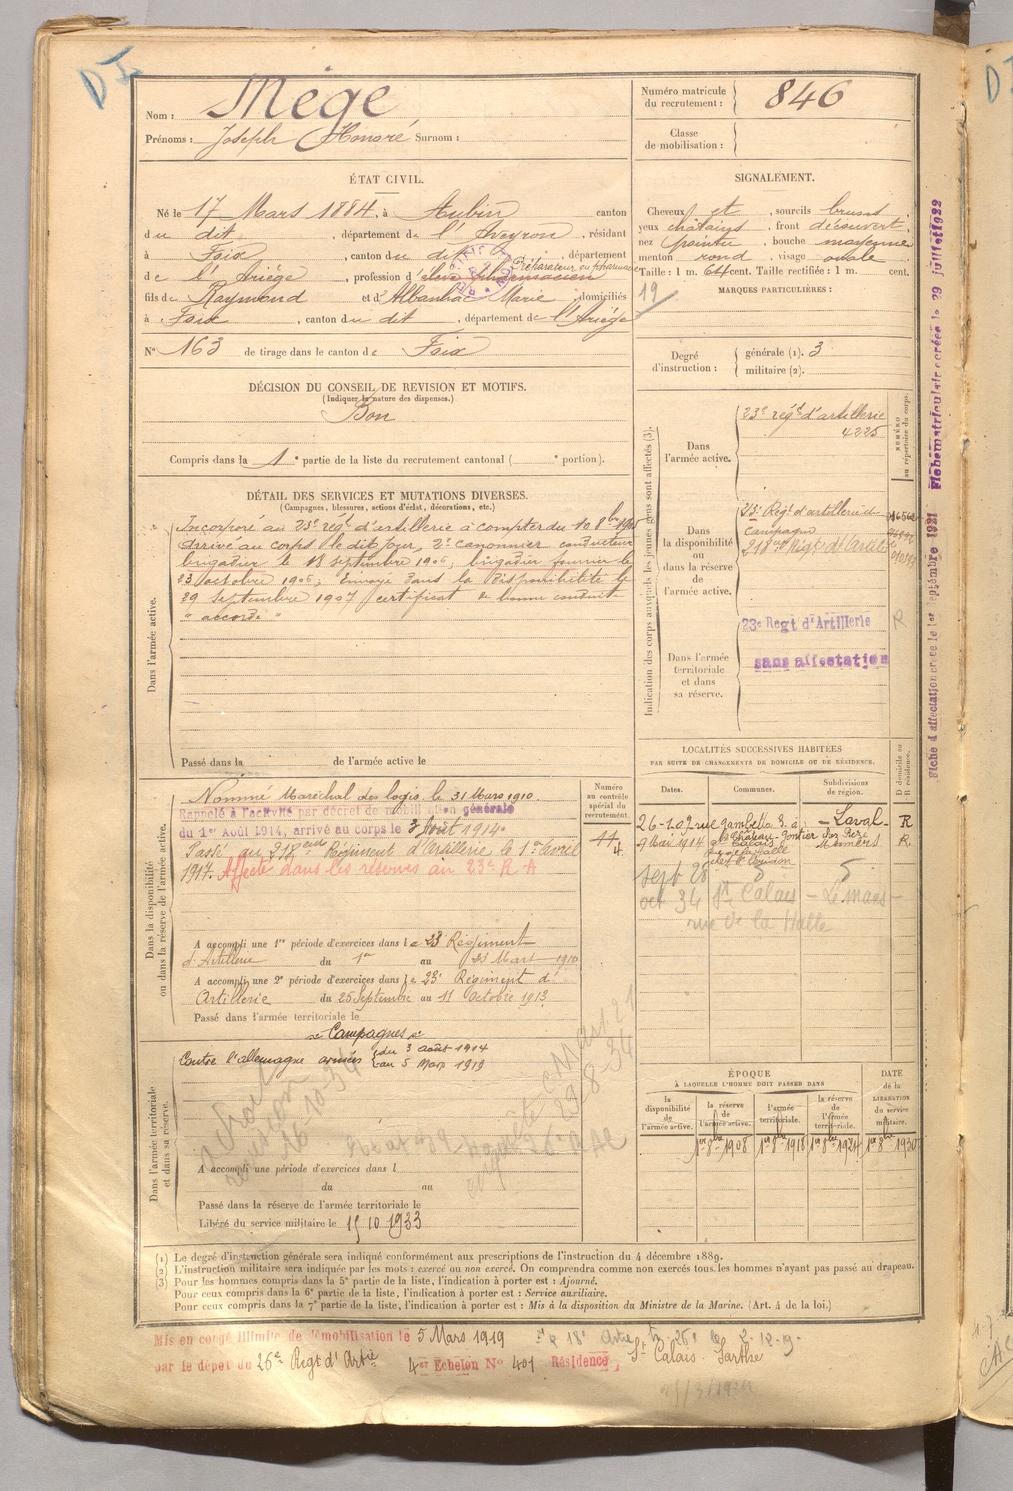 D I
Nom : Mège
Prénoms : Joseph Honoré Surnom :
Numéro matricule du recrutement : 846
Classe de mobilisation :
ÉTAT CIVIL.
Né le 17 Mars 1884, à Aubin canton
du dit, département de l'Aveyron, résidant
à Foix, canton du dit, département
de l'Ariège, profession d'élève pharmacien Préparateur en pharmacie
fils de Raymond et d'Albanhac Marie domiciliés
à Foix, canton du dit, département de l'Ariège
N° 163 de tirage dans le canton de Foix
SIGNALEMENT.
Cheveux et, sourcils bruns
yeux châtains, front découvert
nez pointu, bouche moyenne
menton rond, visage ovale
Taille : 1 m. 64 cent. Taille rectifiée : 1 m. cent.
MARQUES PARTICULIÈRES :
19
Degré d'instruction :
générale (1). 3
militaire (2).
DÉCISION DU CONSEIL DE REVISION ET MOTIFS.
(Indiquer la nature des dispenses.)
Bon
Compris dans la 1e partie de la liste du recrutement cantonal ( e portion).
DÉTAIL DES SERVICES ET MUTATIONS DIVERSES.
(Campagnes, blessures, actions d'éclat, décorations, etc.)
Dans l'armée active.
Incorporé au 23e régt d'artillerie à compter du 10 8bre 1905
Arrivé au corps le dit jour, 2e canonnier conducteur
brigadier le 18 septembre 1906, brigadier fourrier le
23 octobre 1906; Envoyé dans la Disponibilité le
29 septembre 1907 certificat de bonne conduite
" accordé "
Passé dans la de l'armée active le
Indication des corps auxquels les jeunes gens sont affectés (3).
Dans l'armée active.
23e régt d'artillerie
4225
NUMÉRO au répertoire du corps.
Dans la disponibilité ou dans la réserve de l'armée active.
23e Régt d'artillerie de
campagne
218eme Régt d'Artie
23e Regt d'Artillerie
R
Dans l'armée territoriale et dans sa réserve.
sans affectation
Fiche d'affectation créée le 1er Septembre 1921
Fiche matriculaire créée le 29 juillet 1922
Dans la disponibilité ou dans la réserve de l'armée active.
Nommé Maréchal des logis le 31 Mars 1910.
Rappelé à l'activité par décret de mobilisation générale
du 1er Août 1914, arrivé au corps le 3 Août 1914.
Passé au 218eme Régiment d'Artillerie le 1er avril
1917. Affecté dans les réserves au 23e R A
Numéro au contrôle spécial du recrutement.
A accompli une 1re période d'exercices dans le 23 Régiment
d'Artillerie du 1er au 23 Mars 1910
A accompli une 2e période d'exercices dans le 23e Régiment d'
Artillerie du 25 Septembre au 11 Octobre 1913
Passé dans l'armée territoriale le
Campagnes
Contre l'allemagne armées du 3 août 1914
au 5 Mars 1919
Dans l'armée territoriale et dans sa réserve.
A accompli une période d'exercices dans l
du au
Passé dans la réserve de l'armée territoriale le
Libéré du service militaire le 15 10 1933
LOCALITÉS SUCCESSIVES HABITÉES
PAR SUITE DE CHANGEMENTS DE DOMICILE OU DE RÉSIDENCE.
Dates. Communes. Subdivisions de région. D domicile ou R résidence.
rue Gambetta 8 à Château-Gontier Laval R
9 Mai 1914 St Calais Mamers R
sept 28
oct 34 St Calais Le Mans
rue de la Halle
ÉPOQUE
À LAQUELLE L'HOMME DOIT PASSER DANS
la disponibilité de l'armée active.
la réserve de l'armée active.
l'armée territoriale.
la réserve de l'armée territoriale.
DATE de la LIBÉRATION du service militaire.
1er 8bre 1908 1er 8bre 1918 1er 8bre 1924 1er 8bre 1930
(1) Le degré d'instruction générale sera indiqué conformément aux prescriptions de l'instruction du 4 décembre 1889.
(2) L'instruction militaire sera indiquée par les mots : exercé ou non exercé. On comprendra comme non exercés tous les hommes n'ayant pas passé au drapeau.
(3) Pour les hommes compris dans la 5e partie de la liste, l'indication à porter est : Ajourné.
Pour ceux compris dans la 6e partie de la liste, l'indication à porter est : Service auxiliaire.
Pour ceux compris dans la 7e partie de la liste, l'indication à porter est : Mis à la disposition du Ministre de la Marine. (Art. 4 de la loi.)
Mis en congé illimité de démobilisation le 5 Mars 1919
par le dépôt du 26e Regt d'Artie 4er Echelon N° 401 Résidence St Calais Sarthe